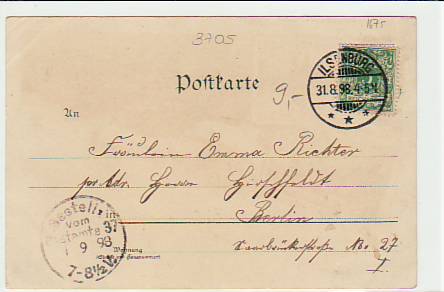 3705
1675
Postkarte
9,-
ILSENBURG
31.8.98.4-5N.
An
Fräulein Emma Richter
pr Adr. Herrn Hirschfeldt
Berlin
Saarbrückerstraße No. 27
I.
Bestellt
vom
Postamte 37
1 9 98
7-8½V.
Wohnung